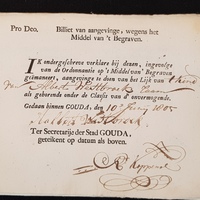 Pro Deo. Billiet van aangevinge, wegens het
Middel van 't Begraven.
IK ondergeschreve verklare bij dezen, ingevolge
van de Ordonnantie op 't Middel van Begraven
geëmaneert, aangevinge te doen van het Lijk van 't Kind
van Albert Westbroek
als gehorende onder de Classis van d'onvermogende.
Gedaan binnen GOUDA, den 10 Juny 1805
Albert Westbroek
Ter Secretarije der Stad GOUDA,
geteikent op datum als boven.